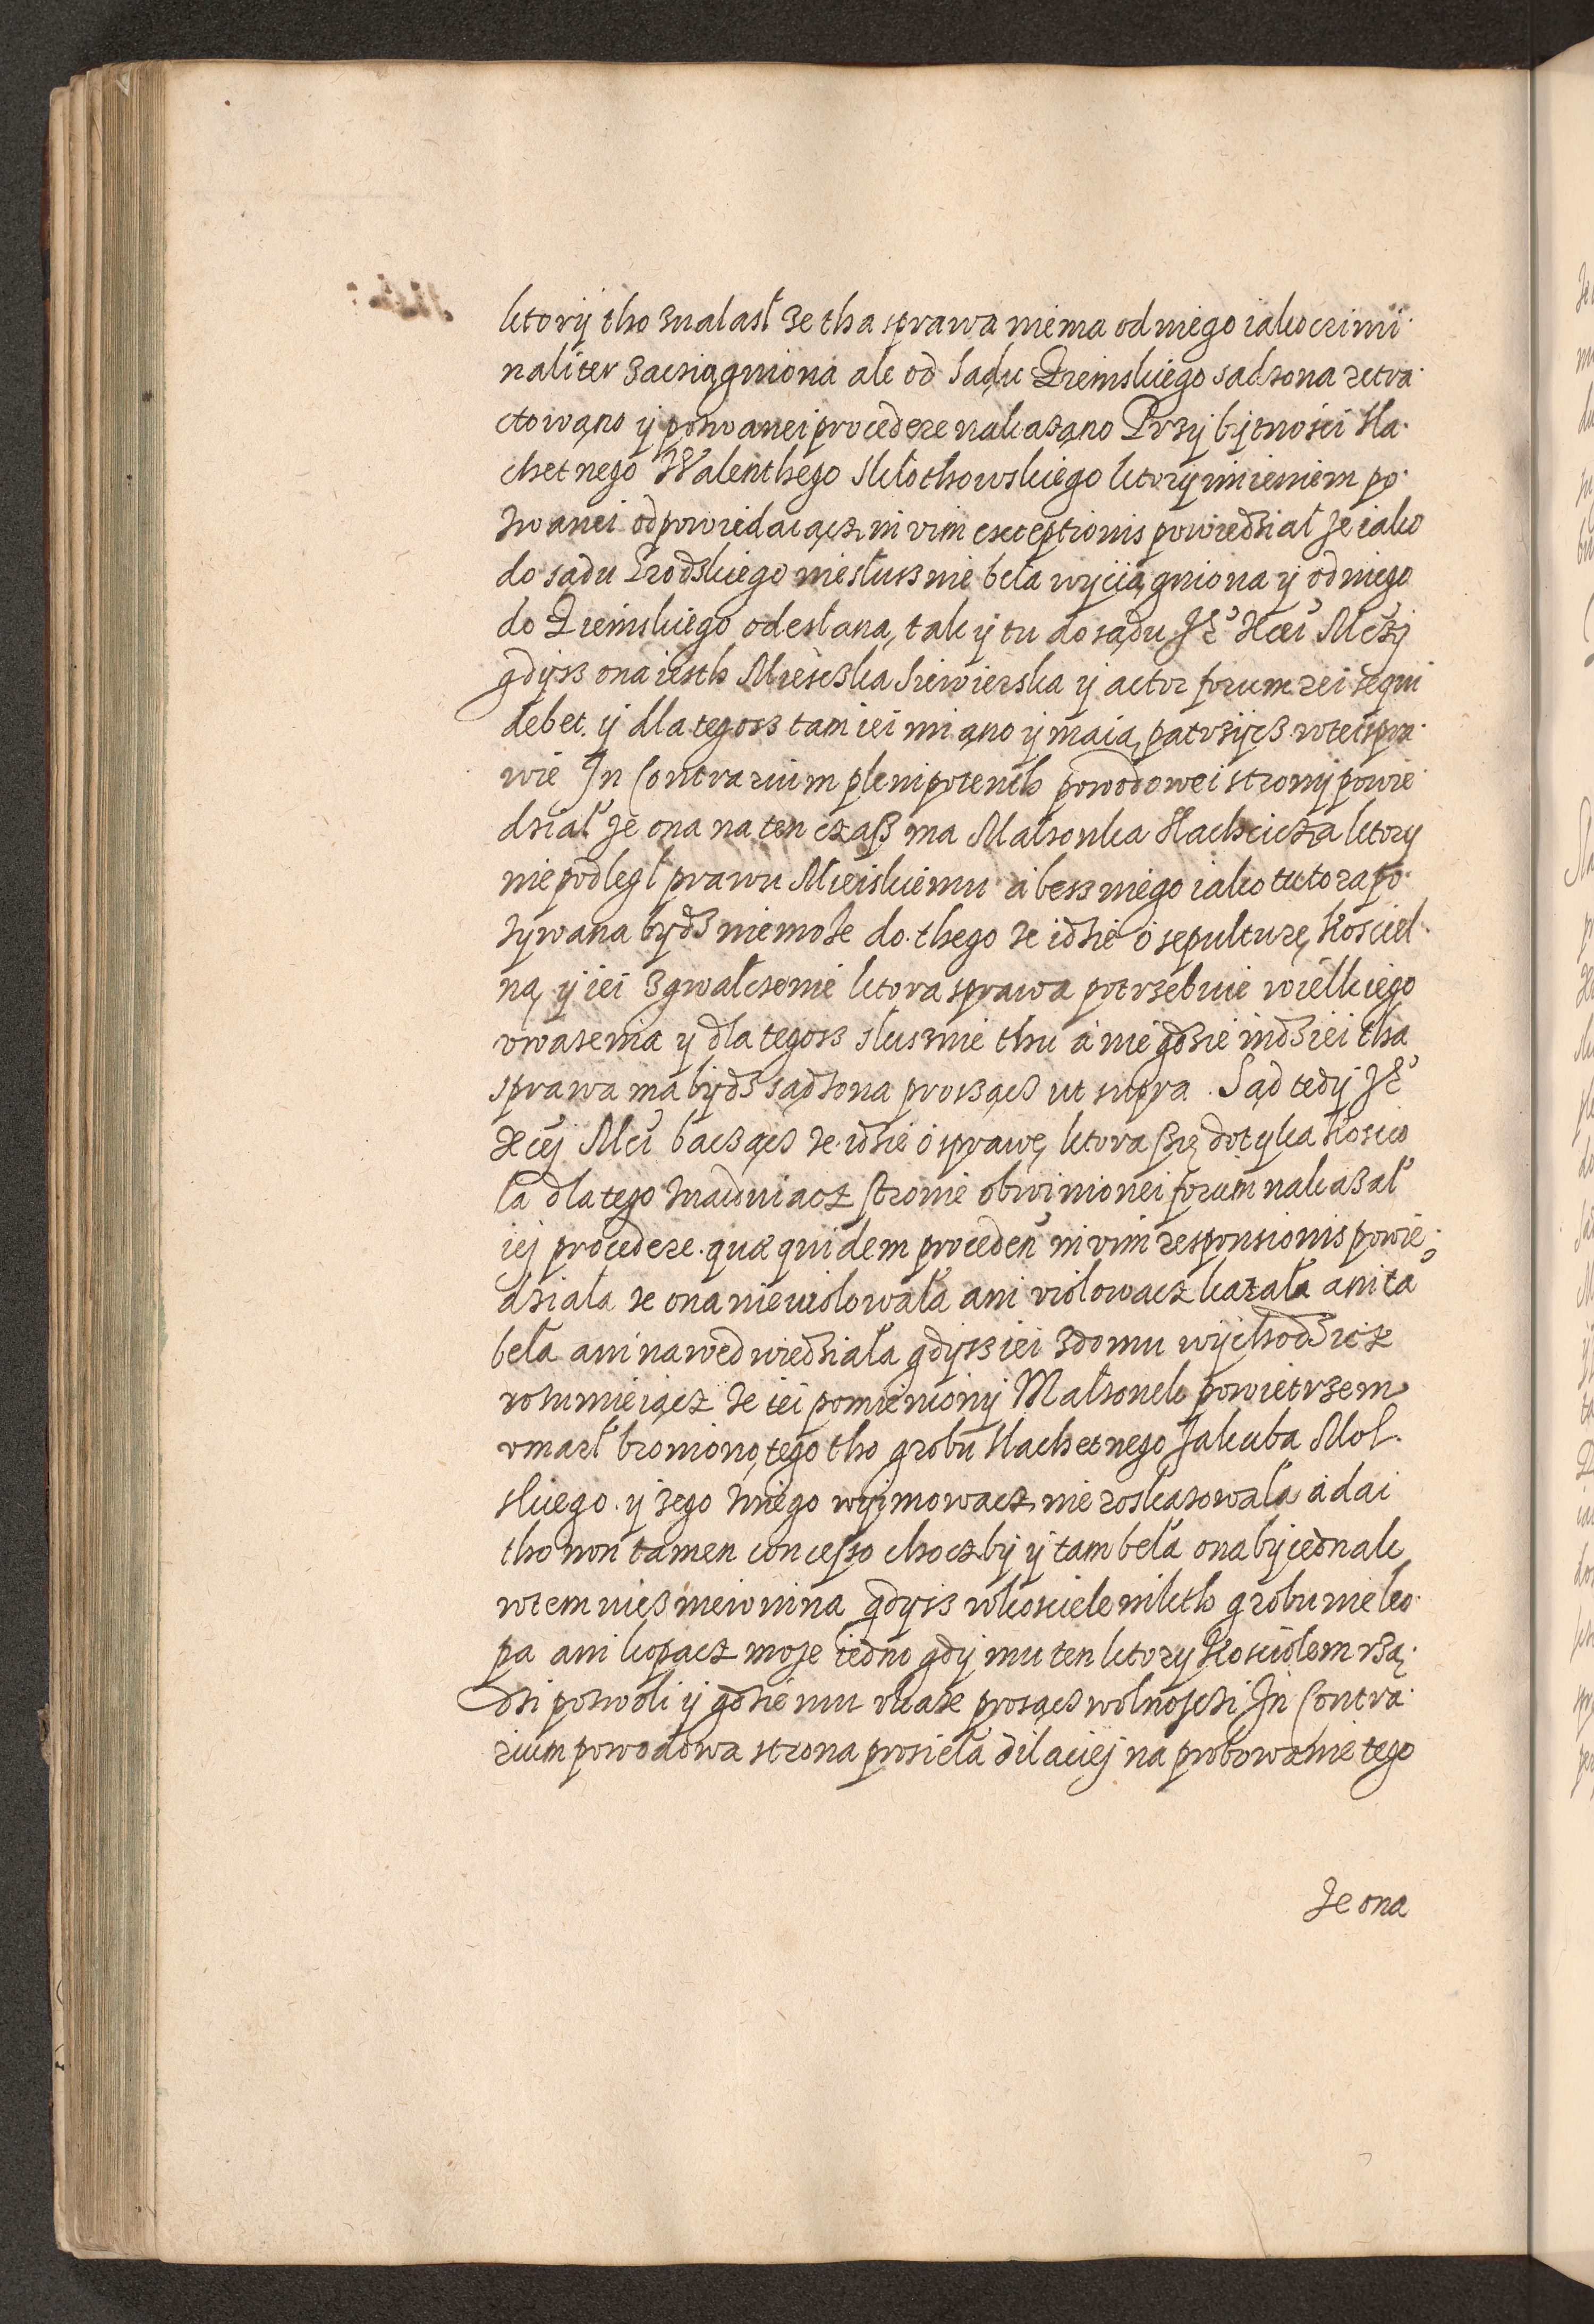 ktorÿ tho znalasł ze tha sprawa niema od niego iako crimi
naliter zaciągniona ale od Sądu Ziemskiego sadzona retra
ctowąno ÿ pozwanei procedere nakaząno Przÿ bÿtności sla
chetnego Walenthego Skłothowskiego ktorÿ imieniem po
zwanei odpowiedaiącz in vim exceptionis powiedział że iako
do sądu Grodskiego niesłusznie beła wyciągniona ÿ odniego
do Ziemskiego odesłana, tak ÿ tu do sądu Je° Xcei Mczi
gdÿsz ona iesth Miesczka Siewierska ÿ actor forum rei sequi
debet. ÿ dla tegosz tam iei miąno ÿ maią patrzÿcz wtei spra
wie In Contrarium plenipotenth powodowei stronÿ powie
dział że ona na ten czasz ma Małzonka slachcicza ktorÿ
niepodległ prawu Mieiskiemu a besz niego iako tutora po
zÿwana bÿdz niemoże do thego ze idzie o sepulturę koscieł
ną ÿ iei zgwałczenie ktora sprawa potrzebuie wielkiego
vwazenia ÿ dla tegosz slusznie thu a nie gdzie indziei tha
sprawa ma bÿdz sądzona proszącz ut supra. Sąd tedÿ Je°
Xcej Mci baczącz ze idzie o sprawę ktora się dotÿka koscio
ła dla tego znaiduiącz stronie obwinionei forum nakazał
iej procedere. quæ quidem procedeñ in vim responsionis powie
działa ze ona nie violowała ani violowacz kazała ani ta
beła ani nawed wiedziała gdÿsz iei zdomu wÿchodzicz
rozumieiącz ze iei pomienionÿ Małzonek powietrzem
vmarł broniono, tego tho grobu slachetnego Jakuba Mol
skiego. ÿ zego zniego wyjmowacz nie roskazowała a dai
tho non tamen concesso choczbÿ ÿ tam beła ona bÿ iednak
wtem niez niewinna gdÿsz wkosciele nikth grobu nie ko
pa ani kopacz moze iedno gdÿ mu ten ktorÿ kosciołem rzą
dzi pozwoli ÿ gdzie mu vkaze proszącz wolnosczi In Contra
rium powodowa strona prosieła dilaciej na probowanie tego
Że ona